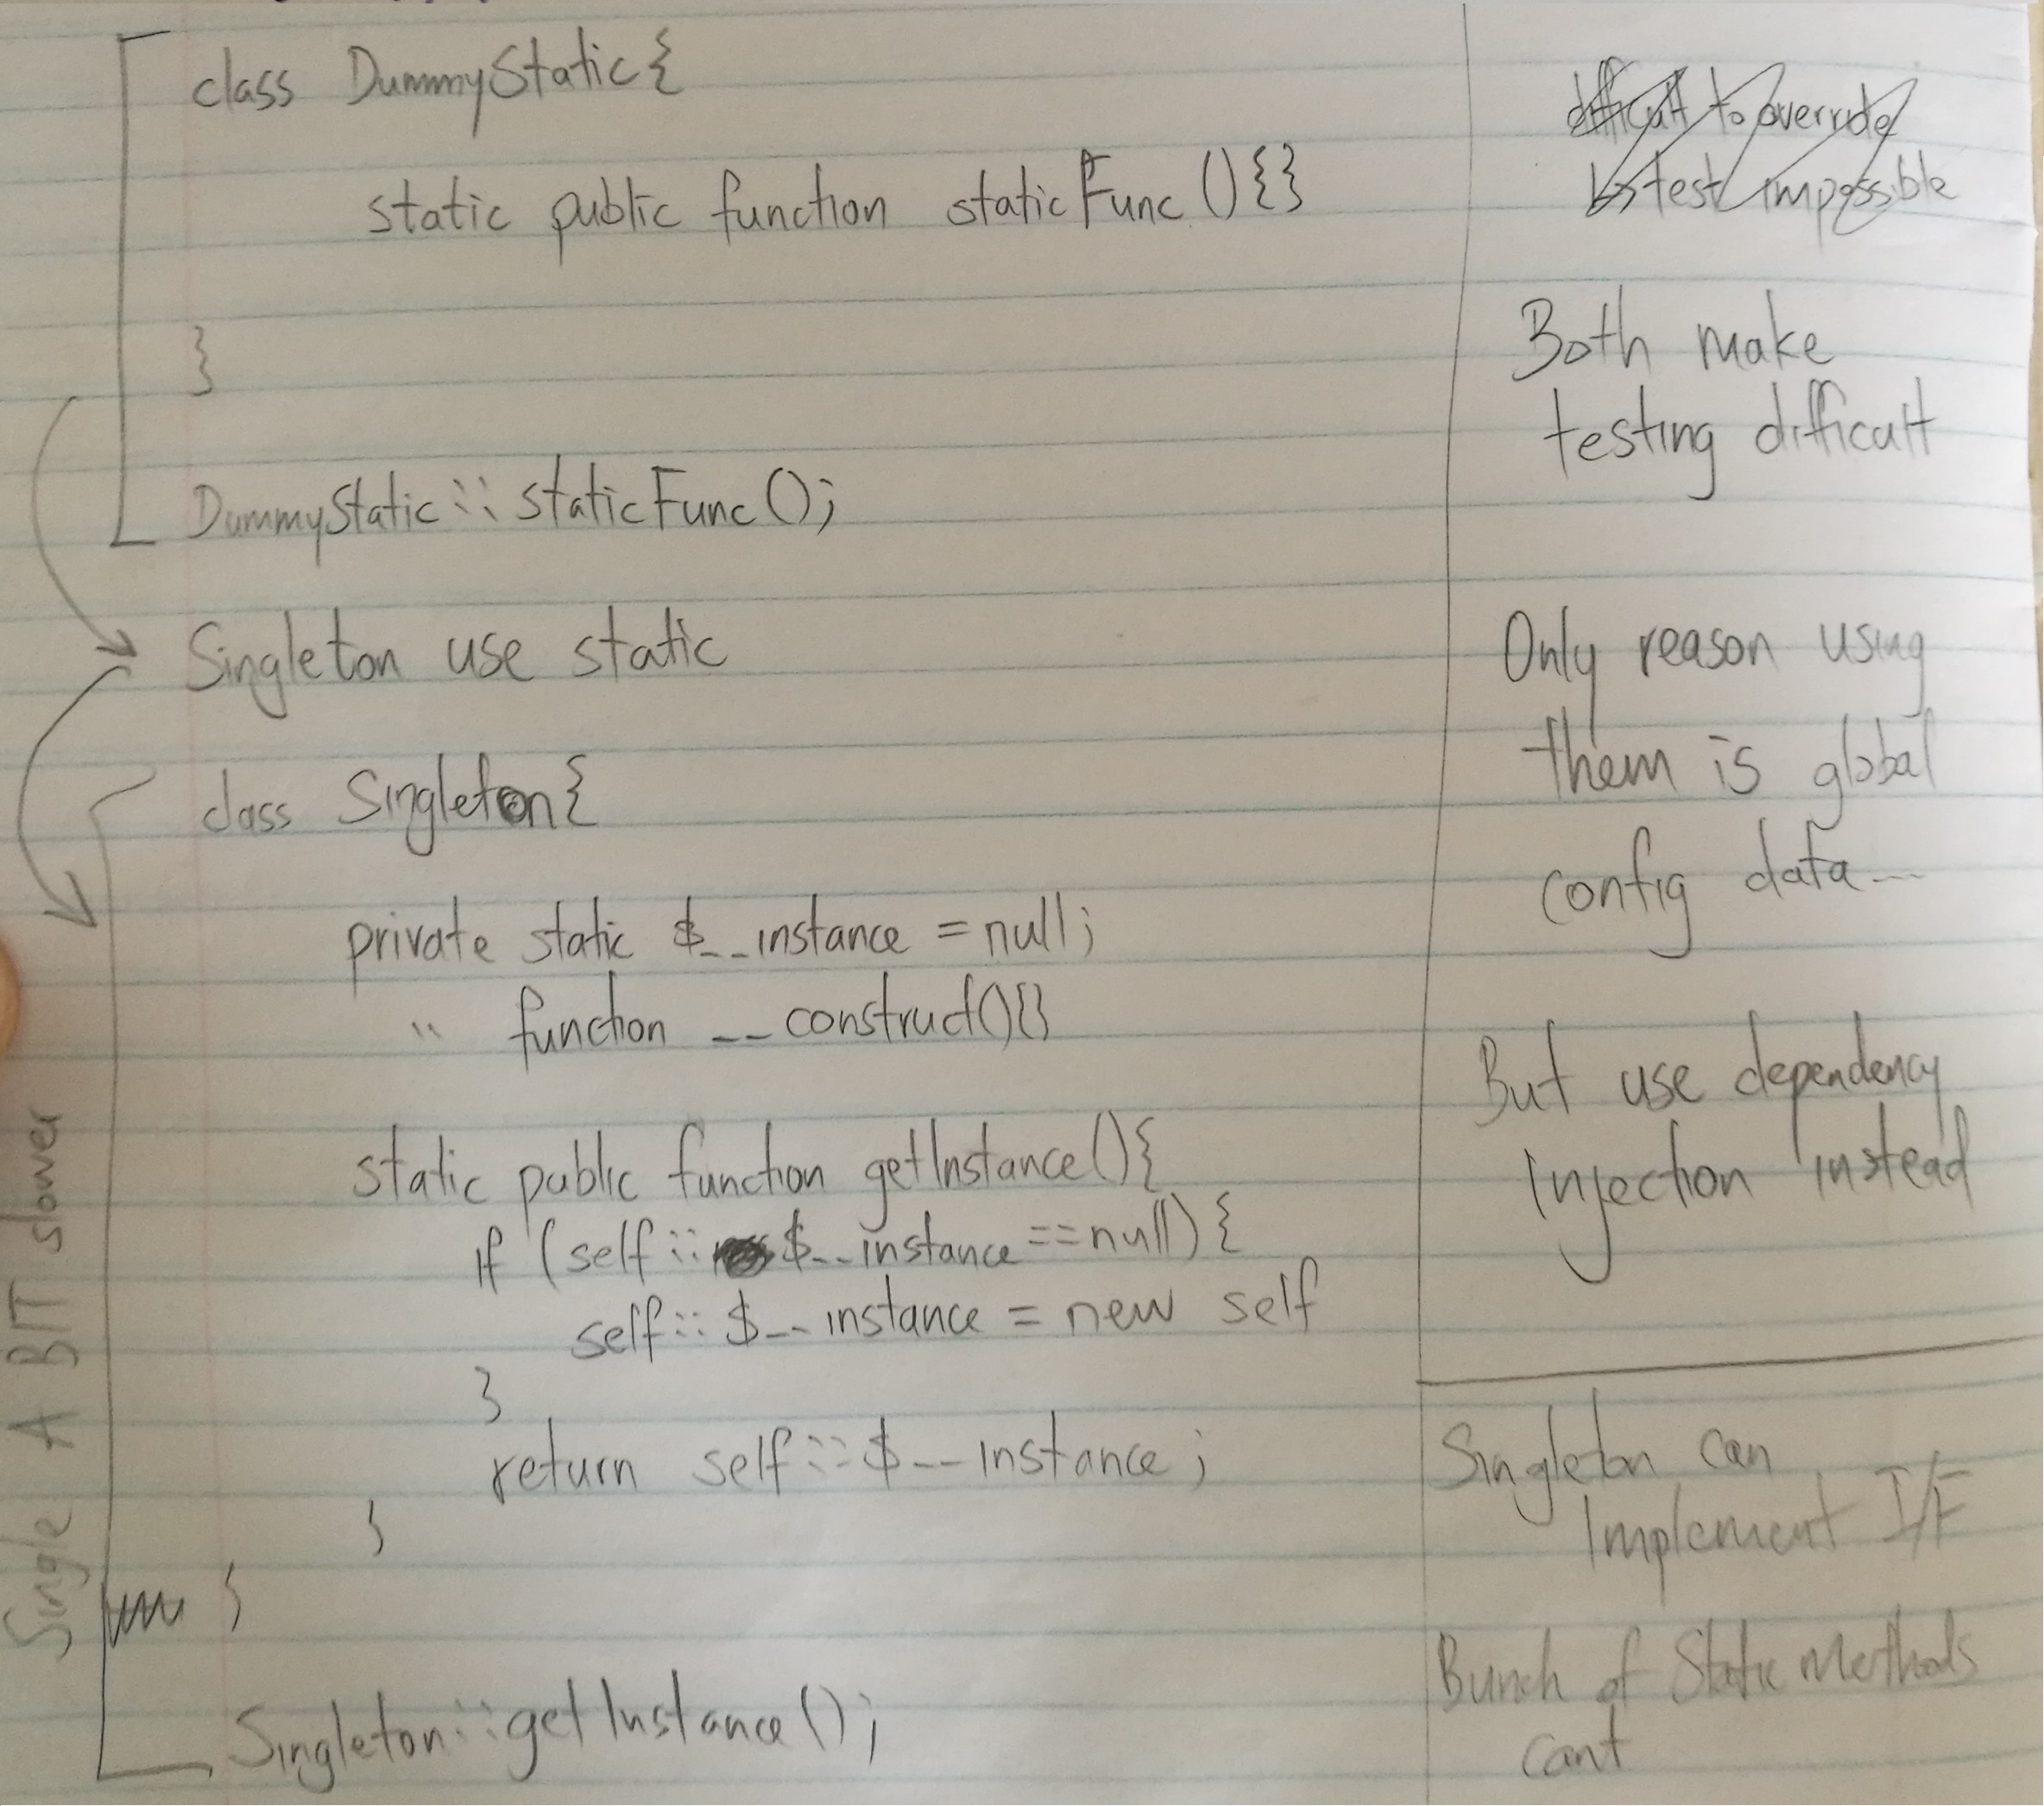 class DummyStatic{
static public function staticFunc(){}
}
DummyStatic::staticFunc();
Singleton use static
class Singleton{
private static $__instance = null;
" function __construct(){}
static public function getInstance(){
if (self::$__instance==null){
self::$__instance = new self
}
return self::$__instance;
}
}
Singleton::getInstance();
Single A BIT slower
difficult to override
test impossible
Both make
testing difficult
Only reason using
them is global
config data...
But use dependency
injection instead
Singleton can
Implement I/F
Bunch of Static Methods
cant